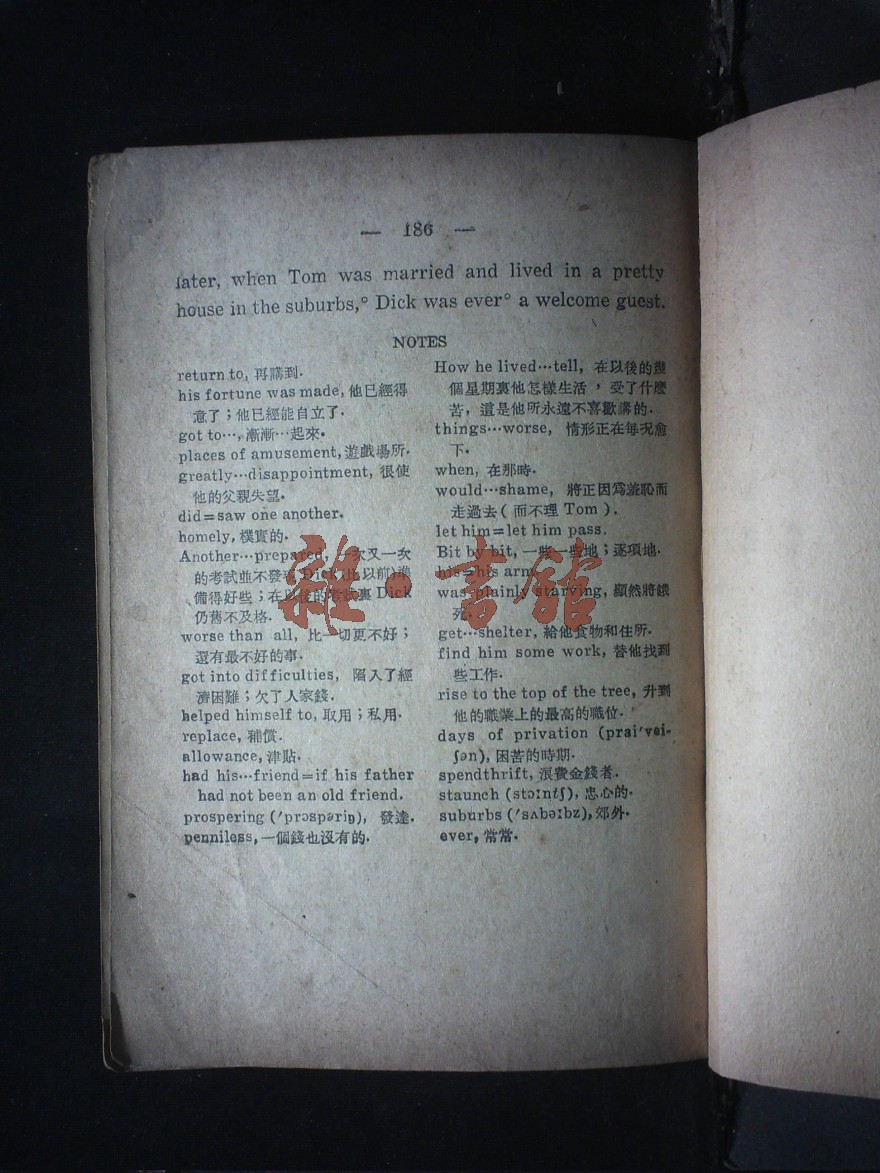 — 186 —
later, when Tom was married and lived in a pretty
house in the suburbs,° Dick was ever° a welcome guest.
NOTES
return to, 再講到.
his fortune was made, 他已經得
意了；他已經能自立了.
got to…, 漸漸…起來.
places of amusement, 遊戲場所.
greatly…disappointment, 很使
他的父親失望.
did=saw one another.
homely, 樸實的.
Another…prepared, 一次又一次
的考試並不發現 Dick (比以前)準
備得好些；在以後的考試裏 Dick
仍舊不及格.
worse than all, 比一切更不好；
還有最不好的事.
got into difficulties, 陷入了經
濟困難；欠了人家錢.
helped himself to, 取用；私用.
replace, 補償.
allowance, 津貼.
had his…friend=if his father
had not been an old friend.
prospering ('prɔspəriŋ), 發達.
penniless, 一個錢也沒有的.
How he lived…tell, 在以後的幾
個星期裏他怎樣生活，受了什麼
苦，這是他所永遠不喜歡講的.
things…worse, 情形正在每況愈
下.
when, 在那時.
would…shame, 將正因爲羞恥而
走過去(而不理 Tom).
let him=let him pass.
Bit by bit, 一些一些地；逐項地.
his=his arm.
was plainly starving, 顯然將餓
死.
get…shelter, 給他食物和住所.
find him some work, 替他找到
些工作.
rise to the top of the tree, 升到
他的職業上的最高的職位.
days of privation (prai'vei-
ʃən), 困苦的時期.
spendthrift, 浪費金錢者.
staunch (stɔːntʃ), 忠心的.
suburbs ('sʌbəːbz), 郊外.
ever, 常常.
雜·書館